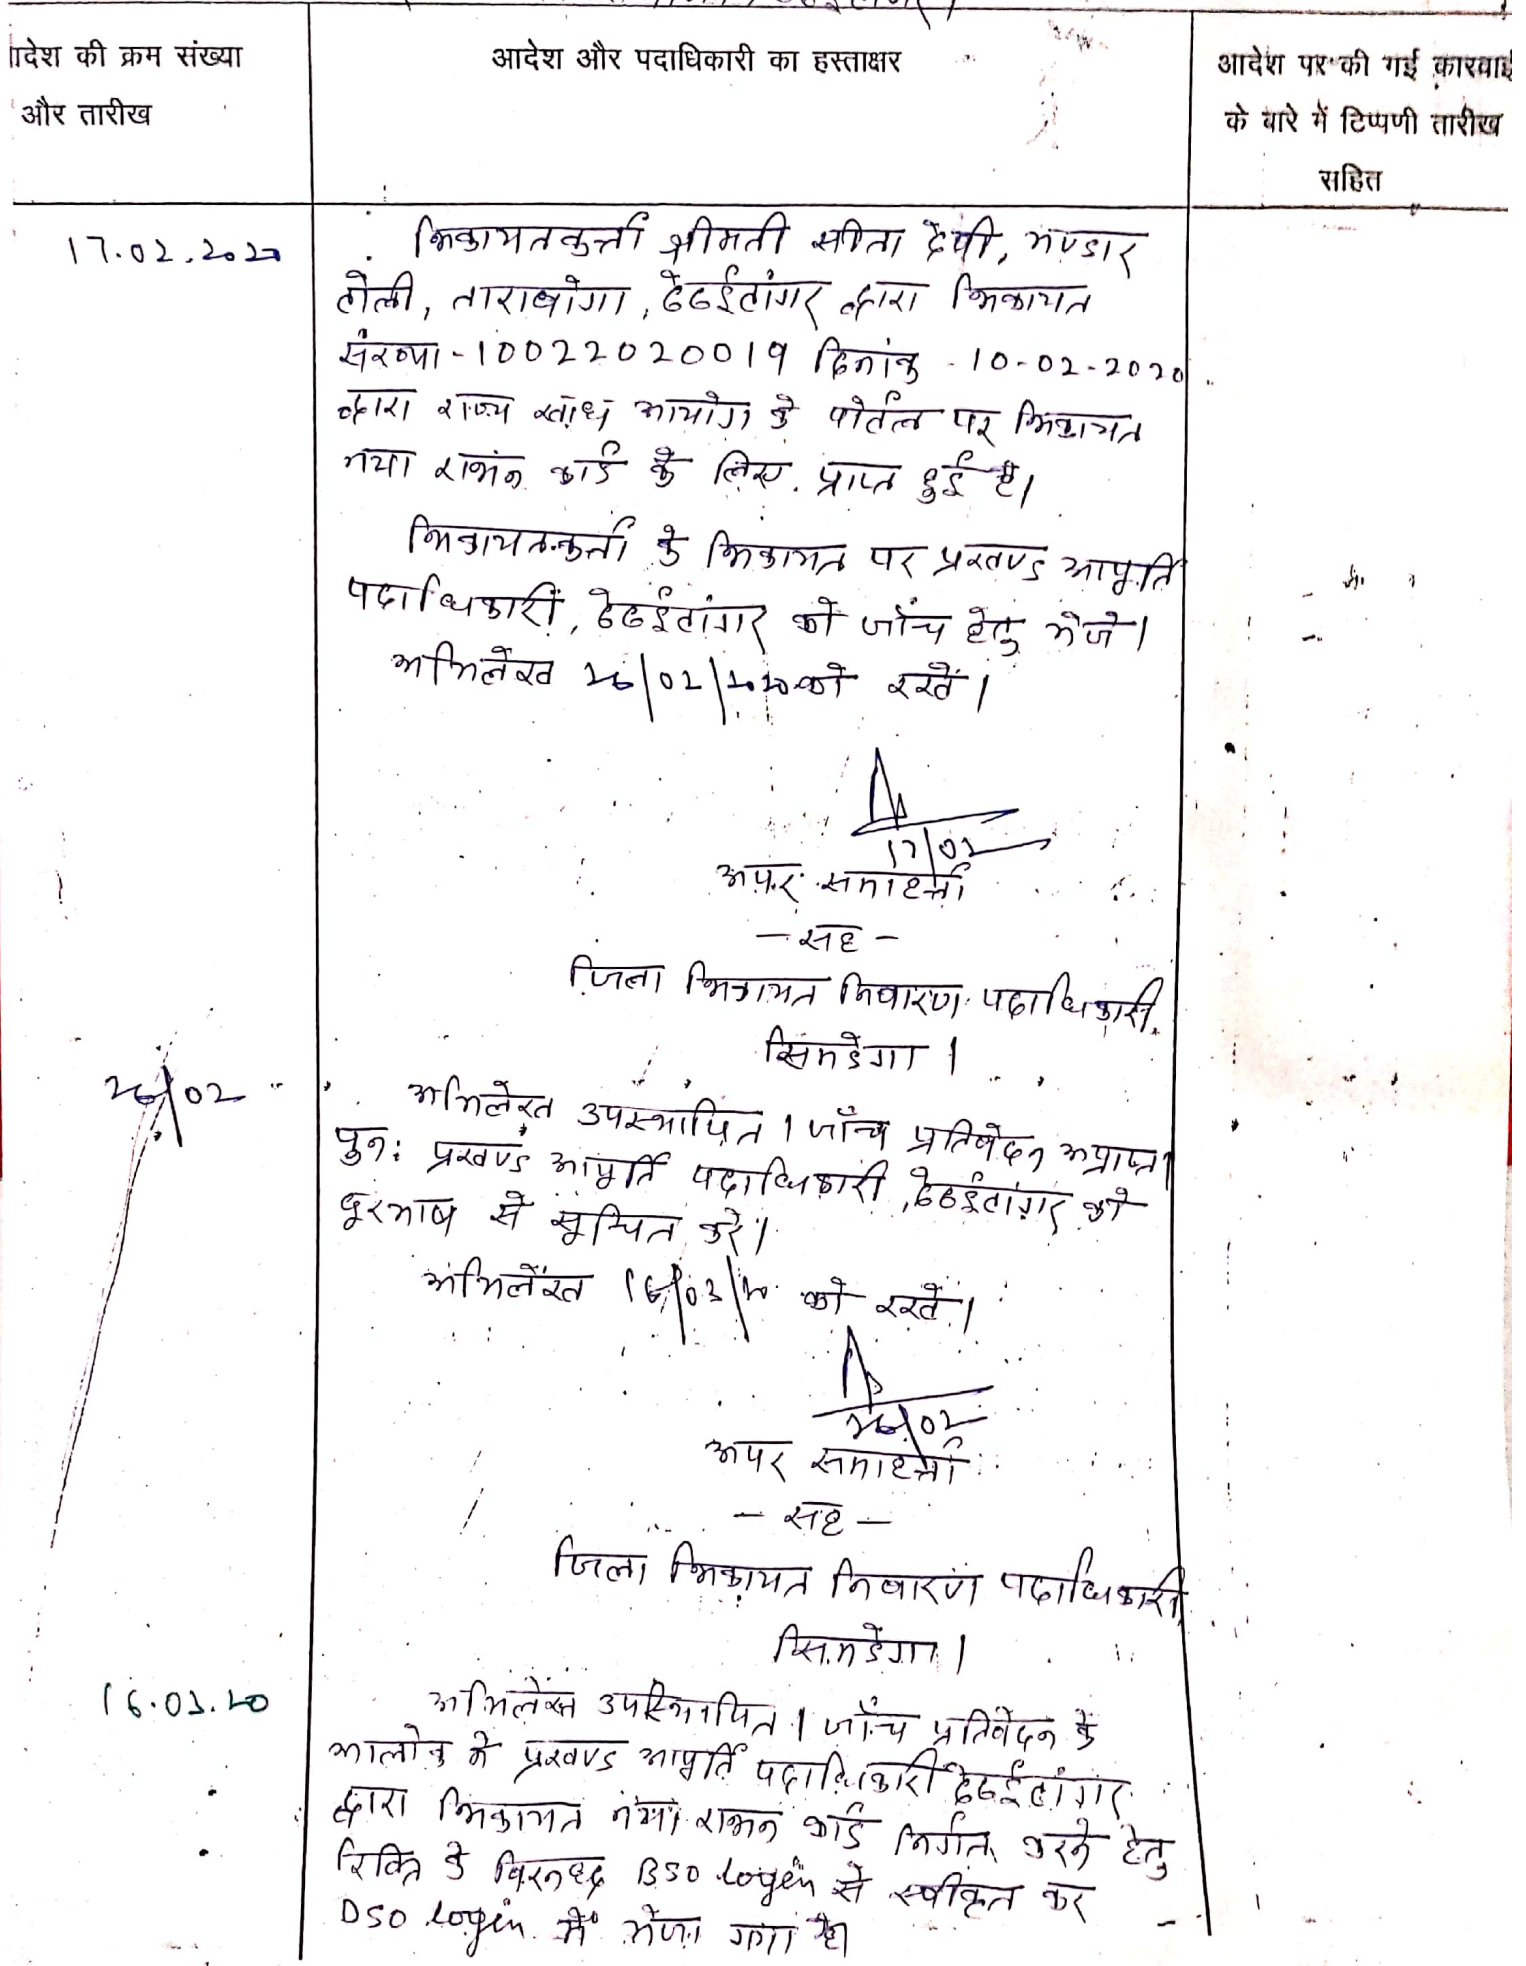 ादेश की क्रम संख्या
और तारीख
आदेश और पदाधिकारी का हस्ताक्षर
आदेश पर की गई कारवाई
के बारे में टिप्पणी तारीख
सहित
17.02.2020
शिकायतकर्त्ता श्रीमती सीता देवी, भण्डार
टोली, ताराबोगा, ठेठईटांगर द्वारा शिकायत
संख्या - 10022020019 दिनांक - 10-02-2020
द्वारा राज्य खाद्य आयोग के पोर्टल पर शिकायत
नया राशन कार्ड के लिए प्राप्त हुई है।
शिकायतकर्त्ता के शिकायत पर प्रखण्ड आपूर्ति
पदाधिकारी, ठेठईटांगर को जाँच हेतु भेजे।
अभिलेख 26/02/2020 को रखें।
17/02
अपर समाहर्त्ता
- सह -
जिला शिकायत निवारण पदाधिकारी,
सिमडेगा।
26/02
अभिलेख उपस्थापित। जाँच प्रतिवेदन अप्राप्त।
पुन: प्रखण्ड आपूर्ति पदाधिकारी, ठेठईटांगर को
दूरभाष से सूचित करे।
अभिलेख 16/03/20 को रखें।
26/02
अपर समाहर्त्ता
- सह -
जिला शिकायत निवारण पदाधिकारी,
सिमडेगा।
16.03.20
अभिलेख उपस्थापित। जाँच प्रतिवेदन के
आलोक में प्रखण्ड आपूर्ति पदाधिकारी ठेठईटांगर
द्वारा शिकायत नया राशन कार्ड निर्गत करने हेतु
रिक्ति के विरूध्द BSO login से स्वीकृत कर
DSO login में भेजा गया है।